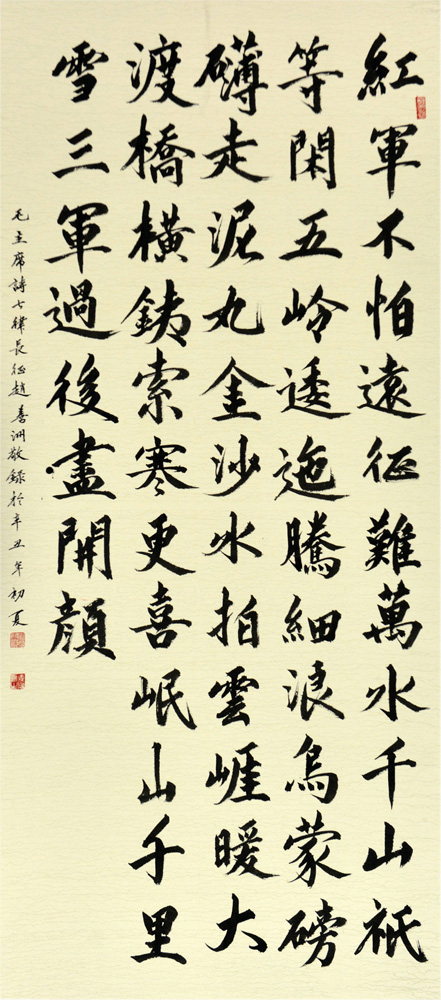 紅軍不怕遠征難萬水千山祇
等閑五岭逶迤騰細浪烏蒙磅
礴走泥丸金沙水拍雲崕暖大
渡橋橫銕索寒更喜岷山千里
雪三軍過後盡開顔
毛主席詩七律長征趙善洲敬錄於辛丑年初夏